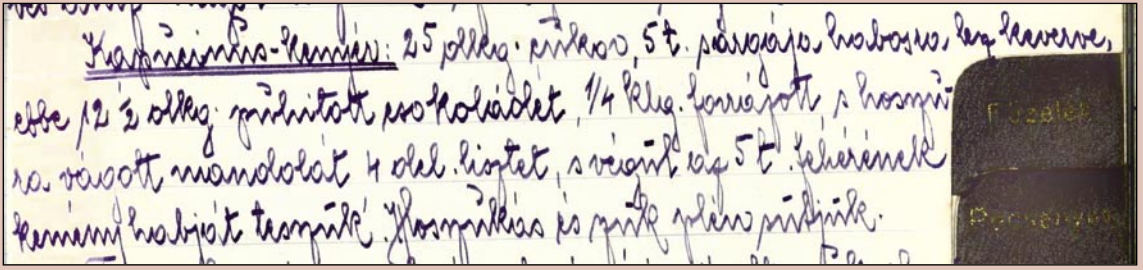 Kapucinus-kenyér: 25 dkg. cukor, 5 t. sárgája habosra kikeverve,
ebbe 12 ½ dkg. puhitott csokoládét, 1/4 klg. forrázott s hoszu-
ra vágott mandolát 4 del. lisztet, s végül az 5 t. fehérének
kemény habját teszük. Hoszukás és szük plén sütjük.
Főzelék